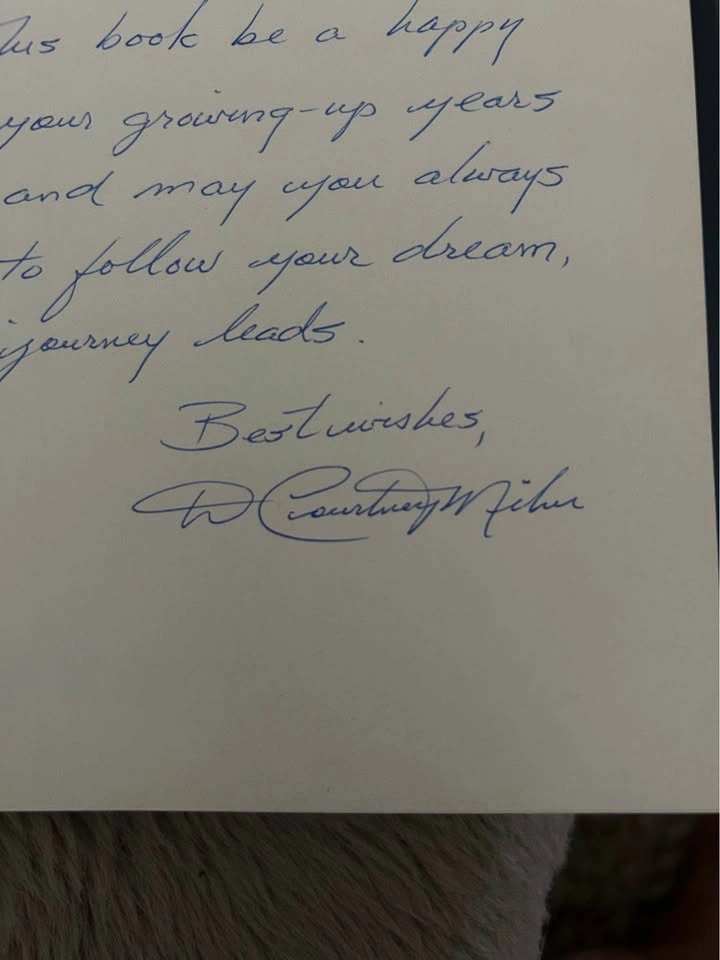 this book be a happy
your growing-up years
and may you always
to follow your dream,
journey leads.
Best wishes,
D Courtney